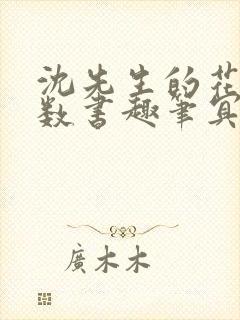 沈先生的花
数书趣笔真
廣木木